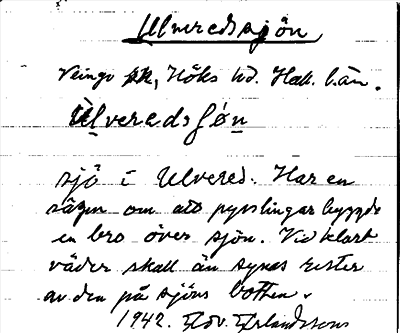 Ulvredssjön
Veinge sn, Höks hd. Hall. län.
Ulveredsjøn
sjö i Ulvered. Har en
sägen om att pysslingar byggde
en bro över sjön. Vid klart
väder skall än synas rester
av den på sjöns botten.
1942. Edv. Erlandsson